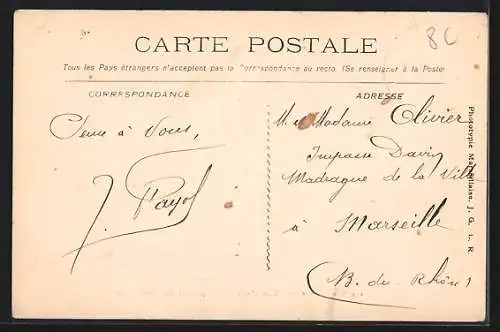 8C
CARTE POSTALE
Tous les Pays étrangers n'acceptent pas la Correspondance au recto. (Se renseigner à la Poste)
CORRESPONDANCE
à Vous,
J. Payol
ADRESSE
M. & Madame Olivier
Impasse Davin
Madrague de la Ville
à Marseille
(B. du Rhône)
Phototypie J. G. L. R.